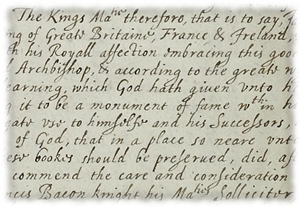 The Kings Ma^tie therefore, that is to say,
ng of Greate Britaine, France & Ireland
h his Royall affection embracing this goo
Archbishop, & according to the greate
earning, which God hath giuen vnto h
g it to be a monument of fame w^th in h
eate vse to himselfe and his Successors,
of God, that in a place so neare vnt
ese bookes should be preserued, did, a
commend the care and consideration
ncis Bacon knight his Ma^ties Solliciter